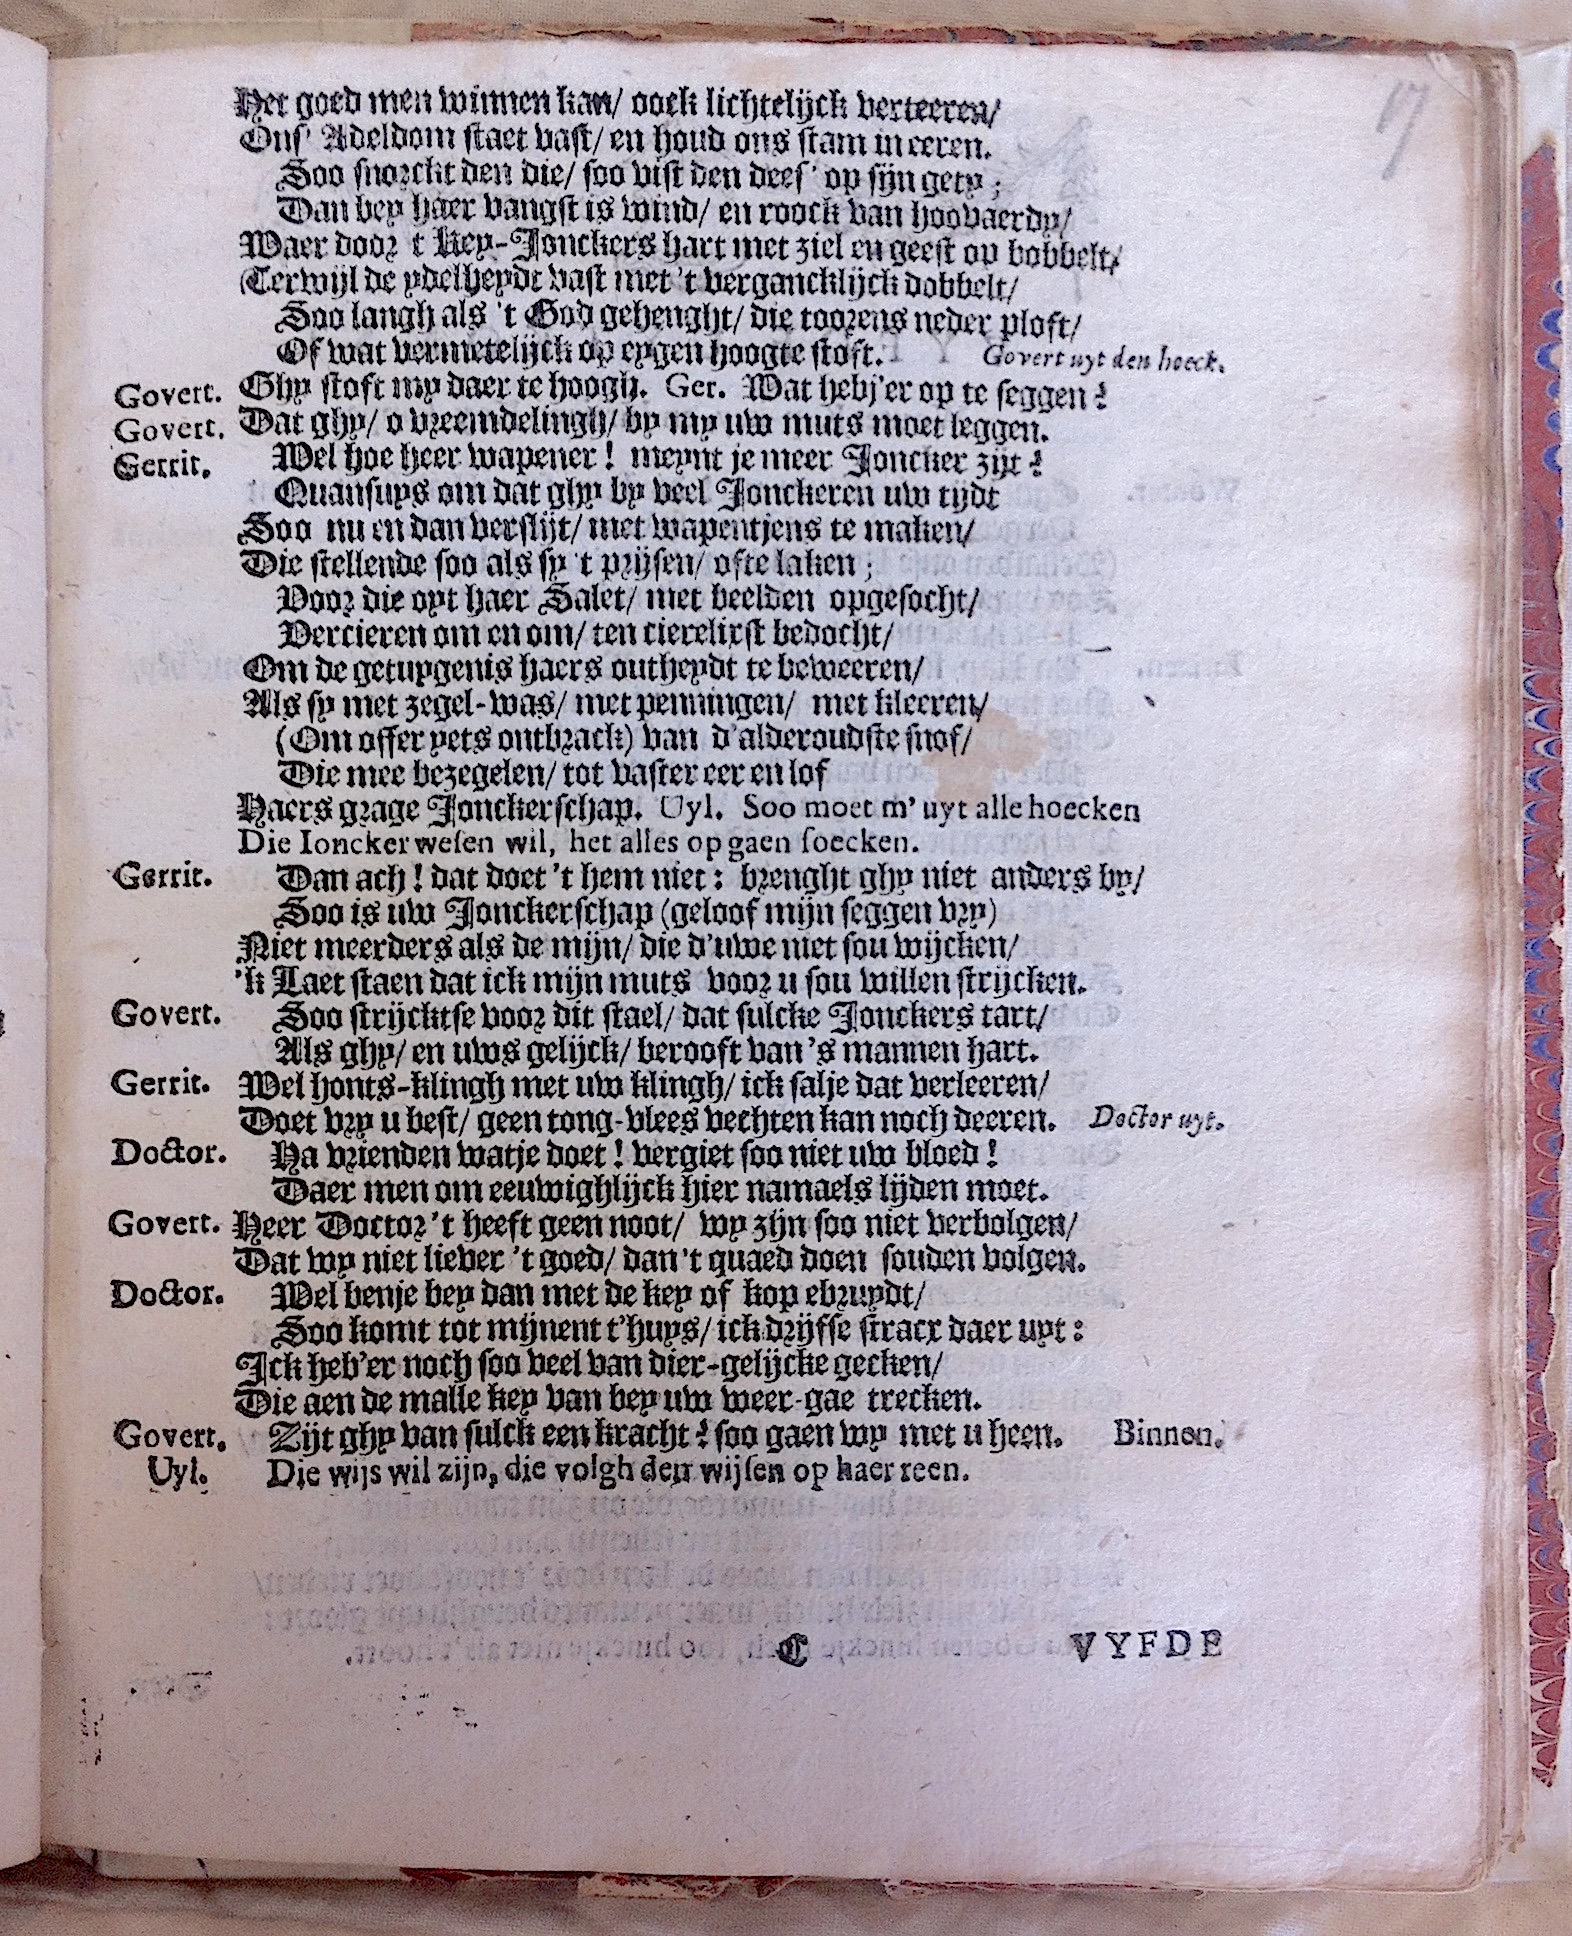 17
Het goed men winnen kan/ oock lichtelijck verteeren/
Ons' Adeldom staet vast/ en houd ons stam in eeren.
Soo snorckt den die/ soo vist den dees' op sijn gety;
Dan bey haer vangst is wind/ en roock van hoovaerdy/
Waer door 't Key-Jonckers hart met ziel en geest op bobbelt/
(Terwijl de ydelheydt vast met 't vergancklijck dobbelt/
Soo langh als 't God gehenght/ die toorens neder ploft/
Of wat vermetelijck op eygen hoogte stoft. Govert uyt den hoeck.
Govert. Ghy stoft my daer te hoogh. Ger. Wat hebj'er op te seggen?
Govert. Dat ghy/ o vreemdelingh/ by my uw muts moet leggen.
Gerrit. Wel hoe heer wapener! meynt je meer Joncker zijt?
Quansuys om dat ghy by veel Jonckeren uw tijdt
Soo nu en dan verslijt/ met wapentjens te maken/
Die stellende soo als sy 't prijsen/ ofte laken;
Voor die oyt haer Salet/ met beelden opgesocht/
Vercieren om en om/ ten cierelixst bedocht/
Om de getuygenis haers outheydt te beweeren/
Als sy met zegel-was/ met penningen/ met kleeren/
(Om offer yets ontbrack) van d'alderoudste snof/
Die mee bezegelen/ tot vaster eer en lof
Haers grage Jonckerschap. Uyl. Soo moet m' uyt alle hoecken
Die Ioncker wesen wil, het alles op gaen soecken.
Gerrit. Dan ach! dat doet 't hem niet: brenght ghy niet anders by/
Soo is uw Jonckerschap (geloof mijn seggen vry)
Niet meerders als de mijn/ die d'uwe niet sou wijcken/
'k Laet staen dat ick mijn muts voor u sou willen strijcken.
Govert. Soo strijcktse voor dit stael/ dat sulcke Jonckers tart/
Als ghy/ en uws gelijck/ berooft van 's mannen hart.
Gerrit. Wel honts-klingh met uw klingh/ ick salje dat verleeren/
Doet vry u best/ geen tong-vlees vechten kan noch deeren. Doctor uyt.
Doctor. Ha vrienden watje doet! vergiet soo niet uw bloed!
Daer men om eeuwighlijck hier namaels lijden moet.
Govert. Heer Doctor 't heeft geen noot/ wy zijn soo niet verbolgen/
Dat wy niet liever 't goed/ dan 't quaed doen souden volgen.
Doctor. Wel benje bey dan met de key of kop ebruydt/
Soo komt tot mijnent t'huys/ ick drijfse stracx daer uyt:
Ick heb'er noch soo veel van dier-gelijcke gecken/
Die aen de malle key van bey uw weer-gae trecken.
Govert. Zijt ghy van sulck een kracht? soo gaen wy met u heen. Binnen.
Uyl. Die wijs wil zijn, die volgh den wijsen op haer reen.
C VYFDE